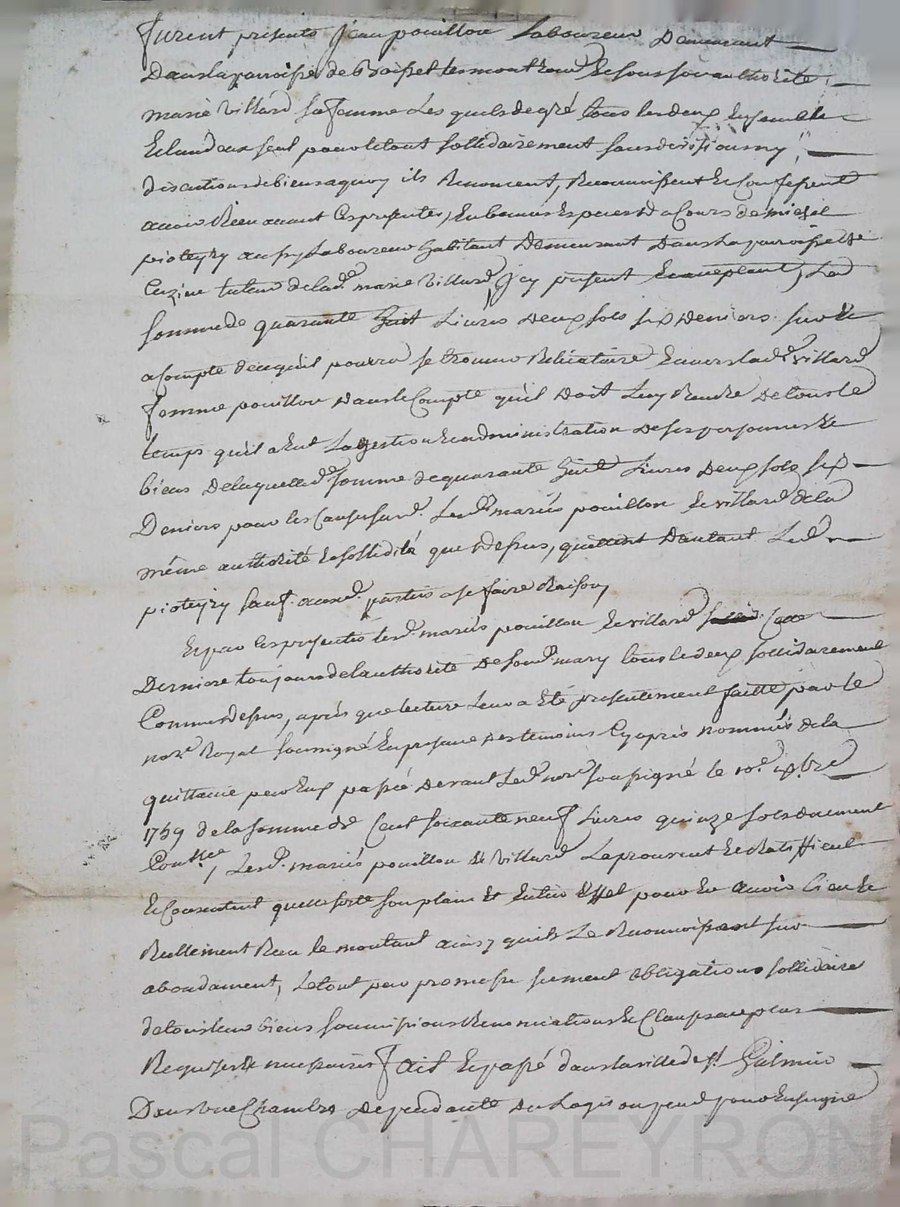 furent presents Jean pouillon Laboureur Demeurant
Dans la parroisse de Boisset les montrond & de sous son authorité
marie Villard sa femme Les quels de gré tous les deux Ensemble
Et lun deux seul pour le tout sollidairement sans division ny
discution de biens a quoy ils Renoncent, Reconnoissent Et Confessent
avoir Reçu avant Ces presentes, En bonnes Especes de Cours de
pioteyry aussy Laboureur habitant Demeurant Dans la parroisse de
tuteur de lad.e marie Villard, jcy present Et acceptant, La
somme de quarante huit Livres Deux sols six Deniers sur Et
a Compte de ce quil pourra se trouver Relicataire Envers lad.e Villard
femme pouillon Dans le Compte quil Doit Luy Rendre De tous le
temps quil a Eut La gestion Et administration De ses personnes Et
biens De laquelle d.e somme de quarante huit Livres Deux sols six
Deniers pour les Causes sus d. Les d. mariés pouillon Et villard de la
même authorité Et sollidité que dessus, quittent Dautant Led.
pioteyry sauf aux d. parties a se faire Raison
Et par Ces presentes les d. mariés pouillon Et villard Cette
Derniere toujours de lauthorité De son d. mary tous les deux sollidairement
Comme dessus, après que lecture Leur a Eté presentement faitte par le
no.re Royal soussigné En presence des temoins Cy après nommés de la
quittance par Eux passée Devant Led. no.re soussigné le 10.e xbre
1769 de la somme de Cent soixante neuf Livres quinze sols duement
Les d. mariés pouillon Et Villard Laprouvent Et Ratiffient
Et Consentent quelle sorte son plain Et Entier Effet pour En avoir
Reellement Reçu le montant ainsy quils Le Reconnoissent sur
abondament, Le tout par promesse serment obligations sollidaire
de tous leur biens soumissions Renonciations Et Clauses
Requises & necessaires fait Et passé dans la ville de S.t Galmier
Dans une Chambre Dependante Du Logis ou pend pour Enseigne
Pascal CHAREYRON